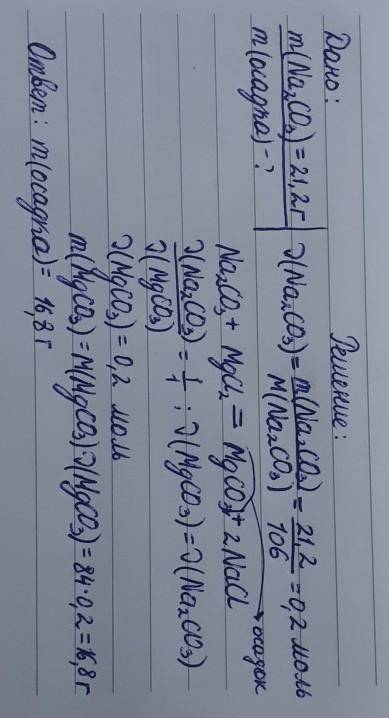 Дано:
Решение:
m(Na₂CO₃) = 21,2г
m(осадка) - ?
ν(Na₂CO₃) = m(Na₂CO₃) / M(Na₂CO₃) = 21,2 / 106 = 0,2 моль
осадок
Na₂CO₃ + MgCl₂ = MgCO₃ + 2NaCl
ν(Na₂CO₃) / ν(MgCO₃) = 1/1 ; ν(MgCO₃) = ν(Na₂CO₃)
ν(MgCO₃) = 0,2 моль
m(MgCO₃) = M(MgCO₃)·ν(MgCO₃) = 84·0,2 = 16,8 г
Ответ: m(осадка) = 16,8 г